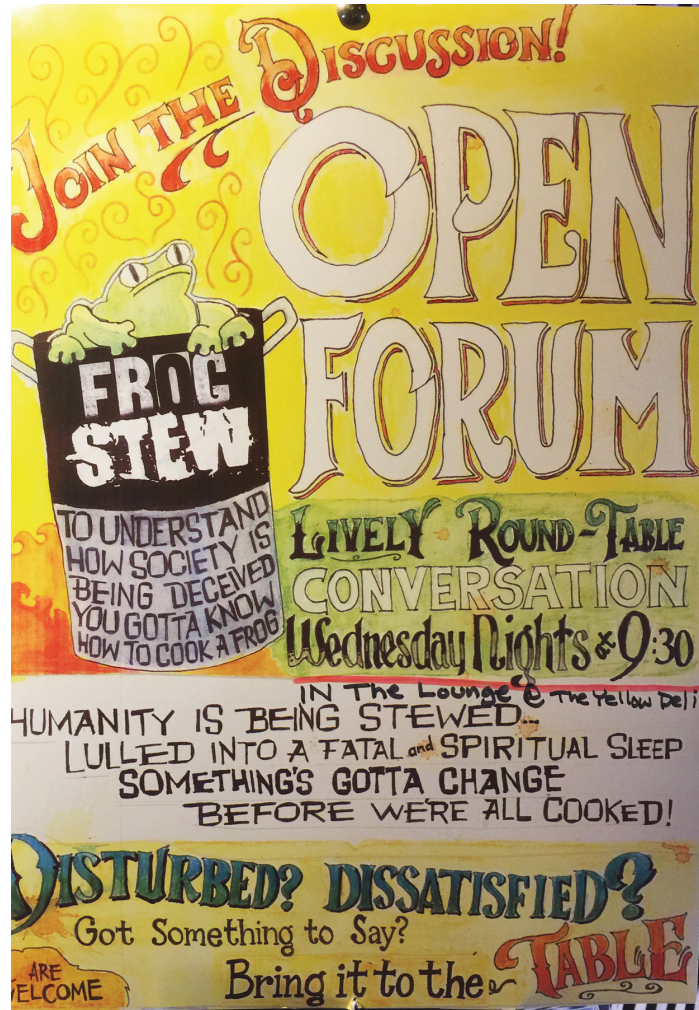 JOIN THE DISCUSSION!
OPEN
FORUM
FROG
STEW
TO UNDERSTAND
HOW SOCIETY IS
BEING DECEIVED
YOU GOTTA KNOW
HOW TO COOK A FROG
LIVELY ROUND-TABLE
CONVERSATION
Wednesday Nights & 9:30
IN The Lounge @ The Yellow Deli
HUMANITY IS BEING STEWED...
LULLED INTO A FATAL and SPIRITUAL SLEEP
SOMETHING'S GOTTA CHANGE
BEFORE WE'RE ALL COOKED!
DISTURBED? DISSATISFIED?
Got Something to Say?
Bring it to the TABLE
ARE
ELCOME